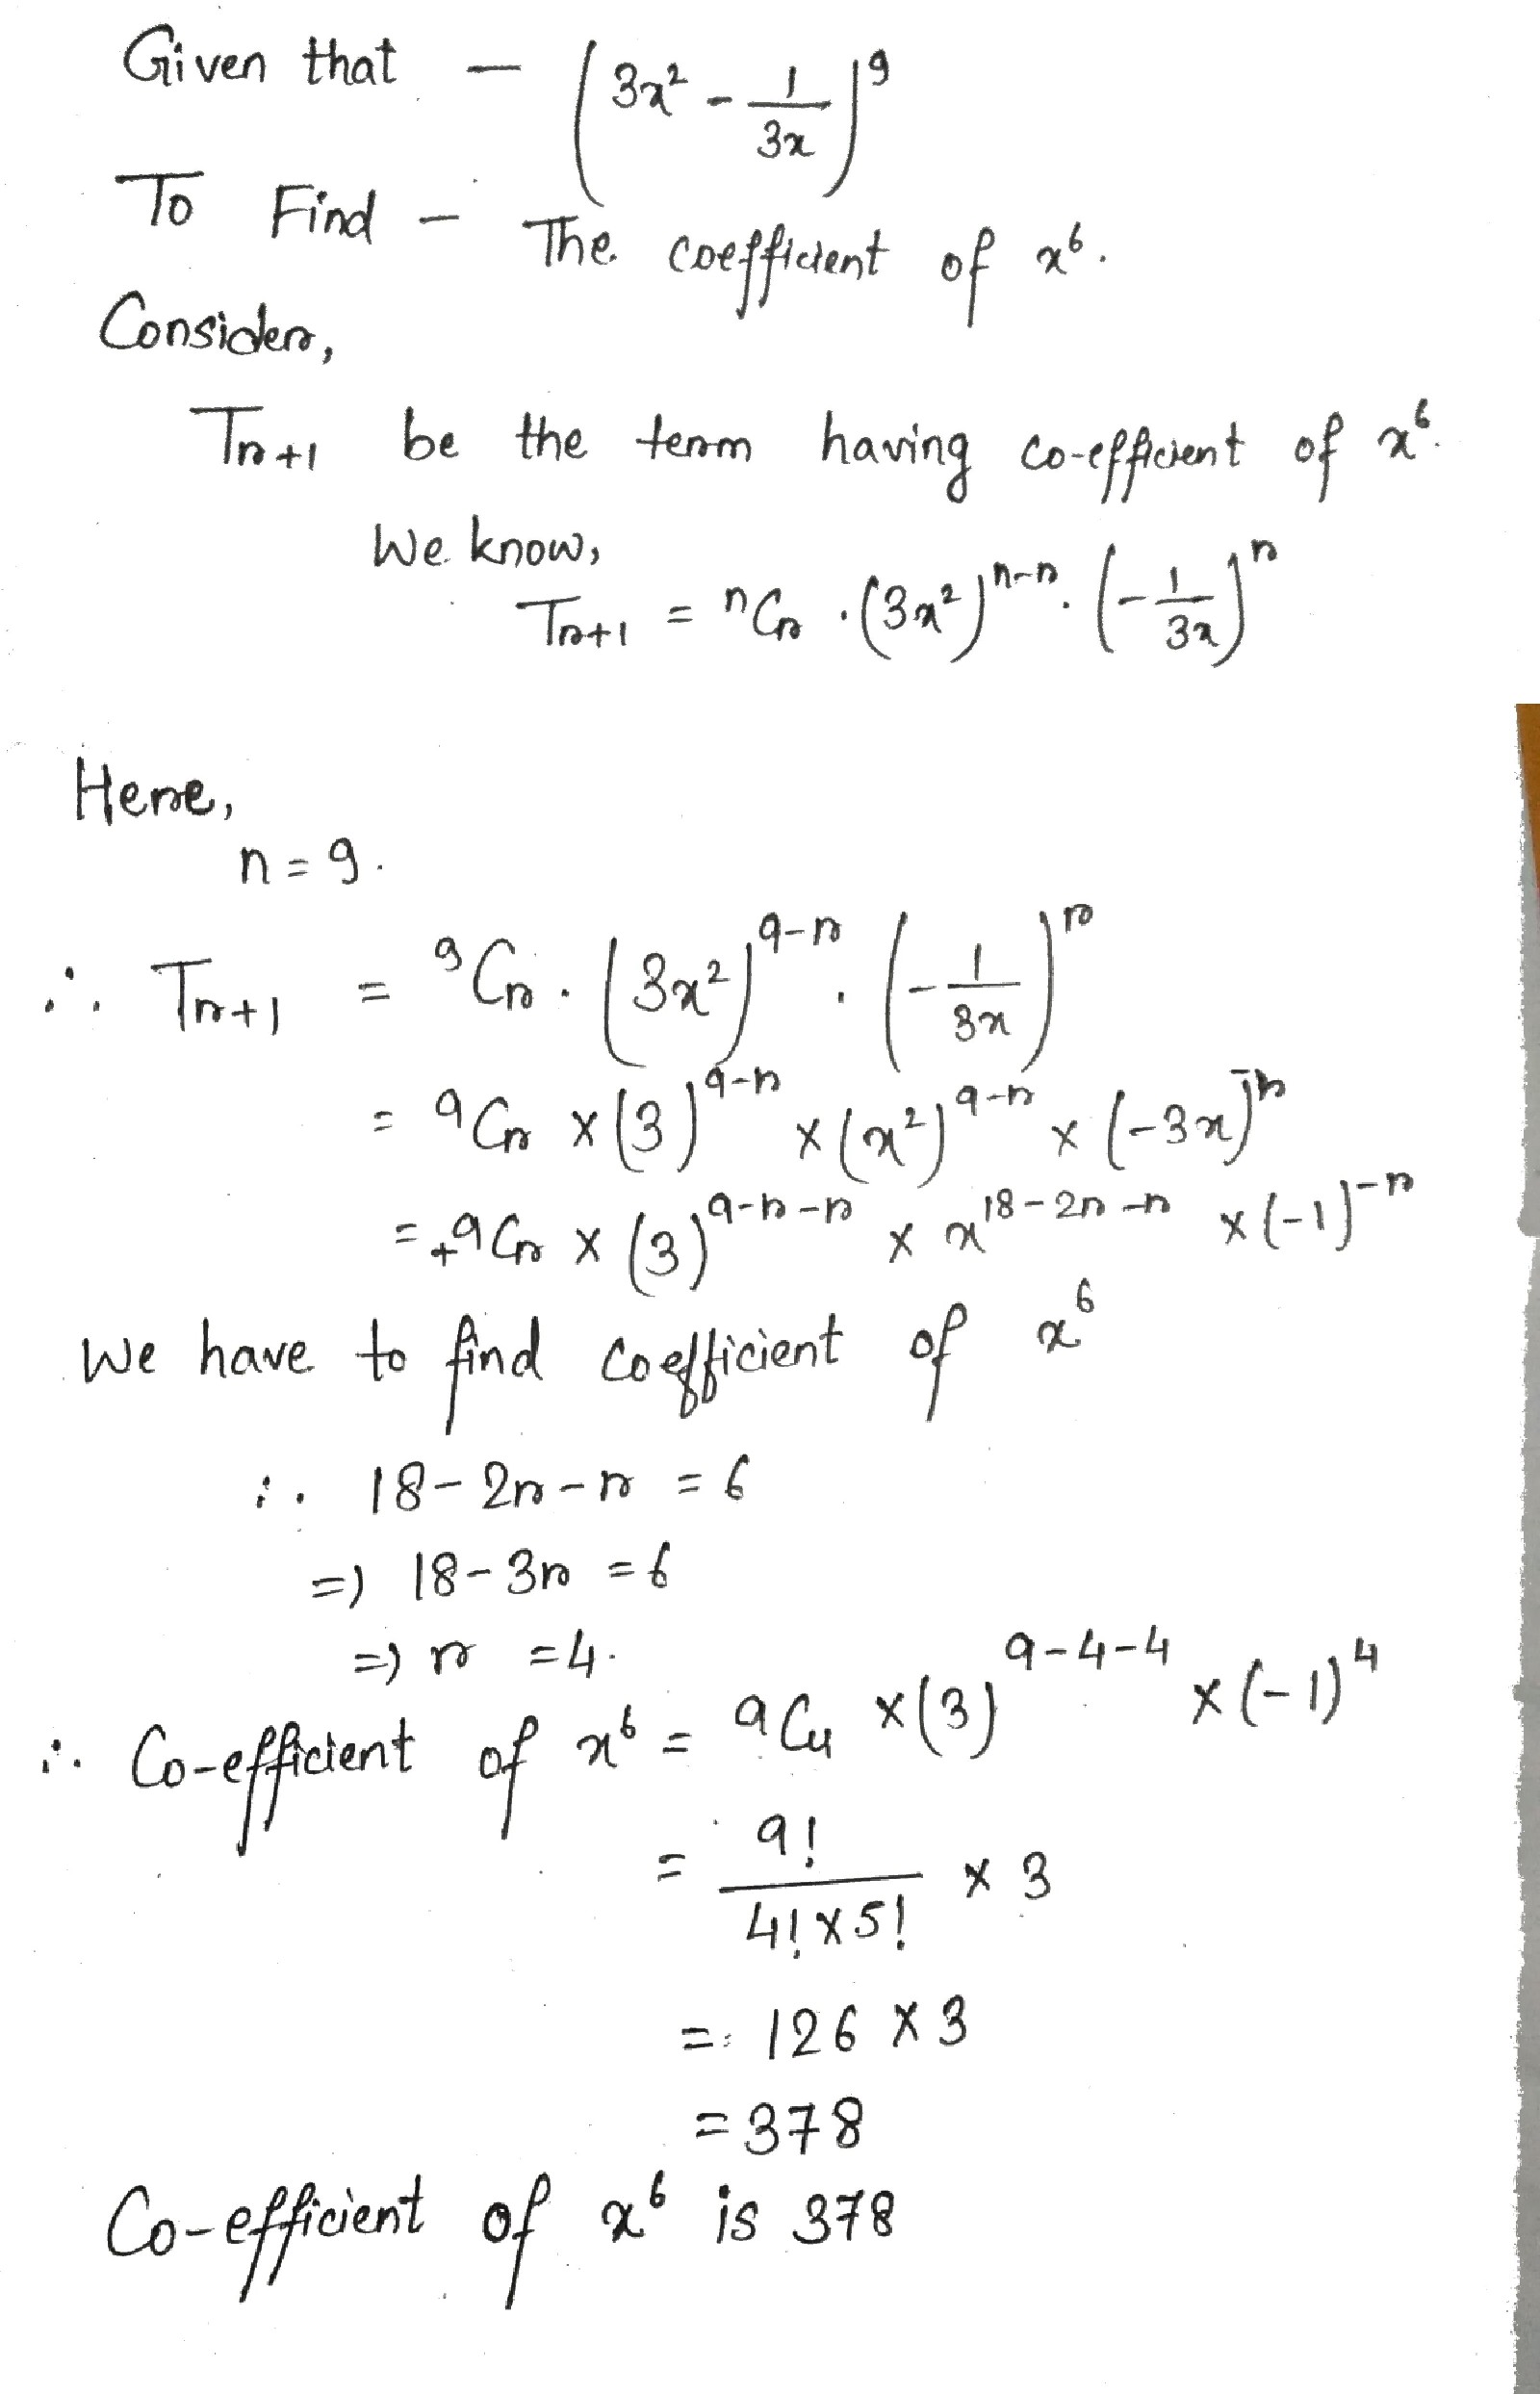 Given that - (3x² - 1/3x)⁹
To Find - The coefficient of x⁶.
Consider,
Tr+1 be the term having co-efficient of x⁶.
We know,
Tr+1 = ⁿCr . (3x²)ⁿ⁻ʳ . (-1/3x)ʳ
Here,
n = 9.
∴ Tr+1 = ⁹Cr . (3x²)⁹⁻ʳ . (-1/3x)ʳ
= ⁹Cr × (3)⁹⁻ʳ × (x²)⁹⁻ʳ × (-3x)⁻ʳ
= +⁹Cr × (3)⁹⁻ʳ⁻ʳ × x¹⁸⁻²ʳ⁻ʳ × (-1)⁻ʳ
We have to find coefficient of x⁶
∴ 18 - 2r - r = 6
=) 18 - 3r = 6
=) r = 4.
∴ Co-efficient of x⁶ = ⁹C₄ × (3)⁹⁻⁴⁻⁴ × (-1)⁴
= 9!/4! × 5! × 3
= 126 × 3
= 378
Co-efficient of x⁶ is 378